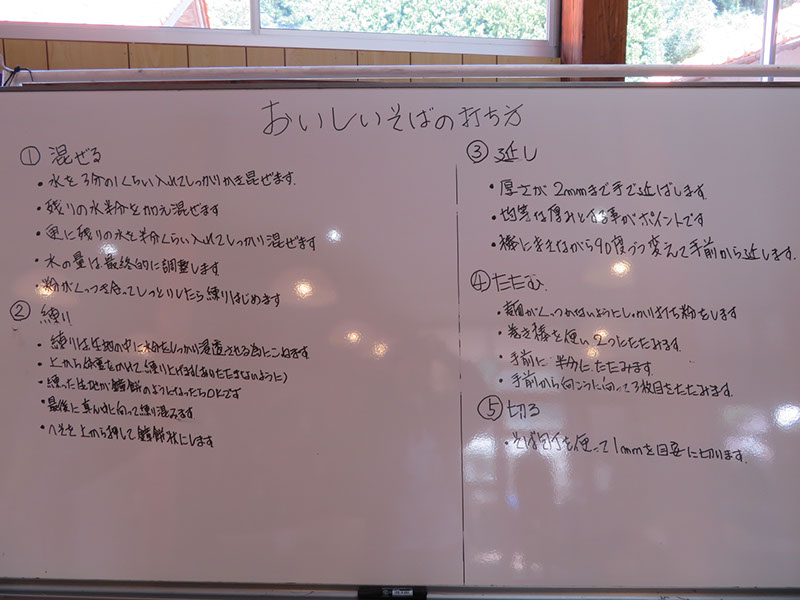 おいしいそばの打ち方
① 混ぜる
・水を3分の1くらい入れてしっかりかき混ぜます。
・残りの水半分を加え混ぜます
・更に残りの水を半分くらい入れてしっかり混ぜます
・水の量は最終的に調整します
・粉がくっつき合ってしっとりしたら練りはじめます
② 練り
・練りは生地の中に水分をしっかり浸透される為にこねます
・上から体重をかけて練り上げます(ありたたきないように)
・練った生地が鏡餅のようになったらOKです
・最後に真ん中に向って練り混みます
・へそを上から押して鏡餅状にします
③ 延し
・厚さが2mmまで手で延ばします。
・均等な厚みとなる事がポイントです
・棒にまきながら90度づつ変えて手前から延します。
④ たたむ
・麺がくっつかないようにしっかり打ち粉をします
・巻き棒を使い2つにたたみます。
・手前に半分にたたみます。
・手前から向こうに向って3枚目をたたみます。
⑤ 切る
・そば包丁を使って1mmを目安に切ります。